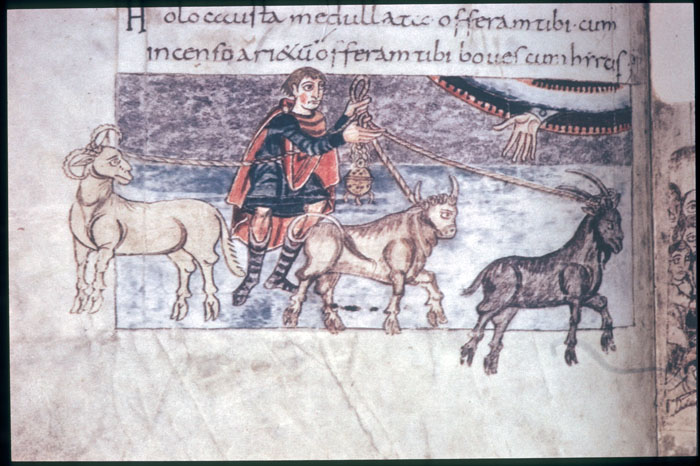 Holocausta medullata offeram tibi· cum
incenso ari&ū offeram tibi boues cum hircis